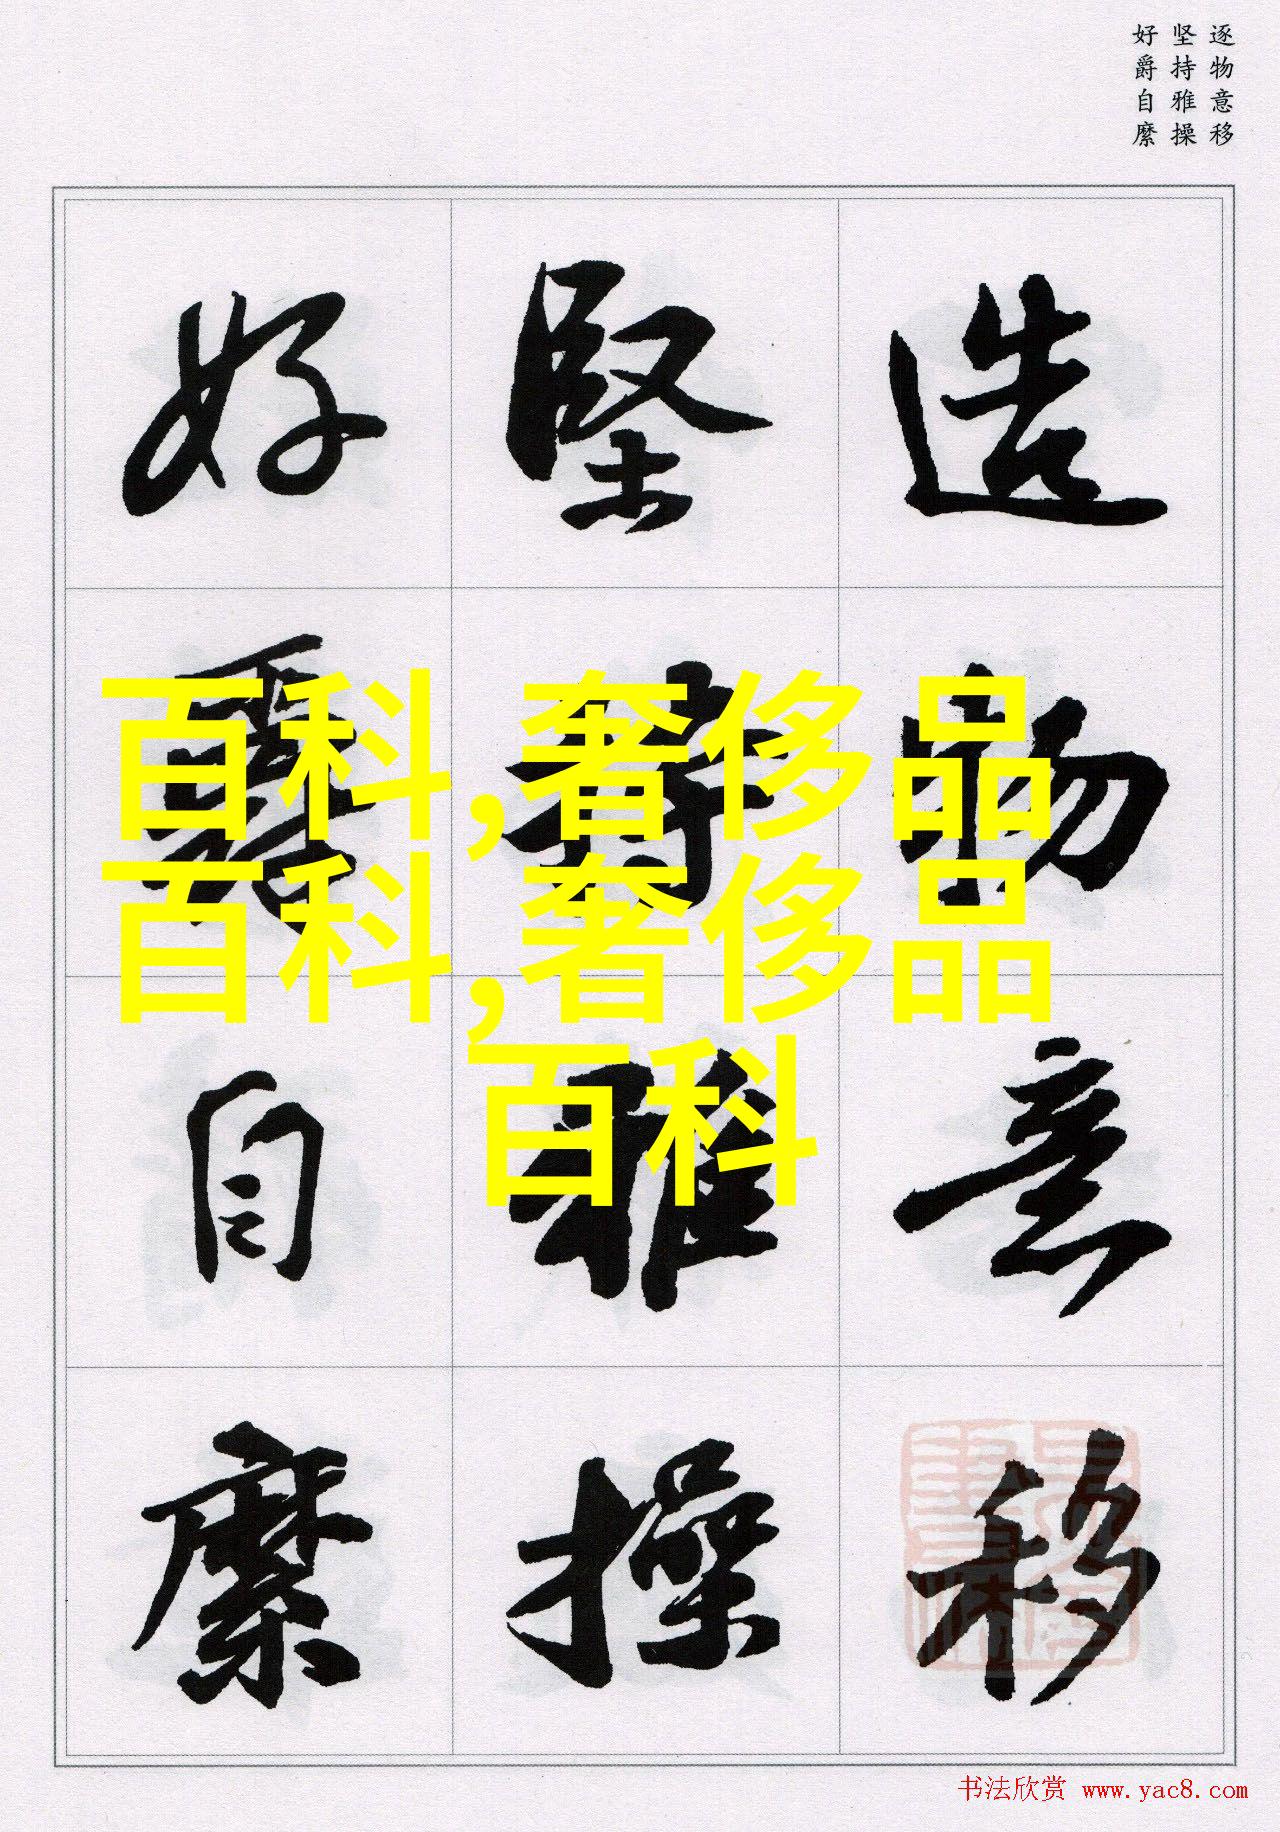 逐物意移
坚持雅操
好爵自縻
造物意移
堅持雅操
好爵自縻
百科,奢侈品
百科,奢侈品
百科
书法欣赏 www.yac8.com